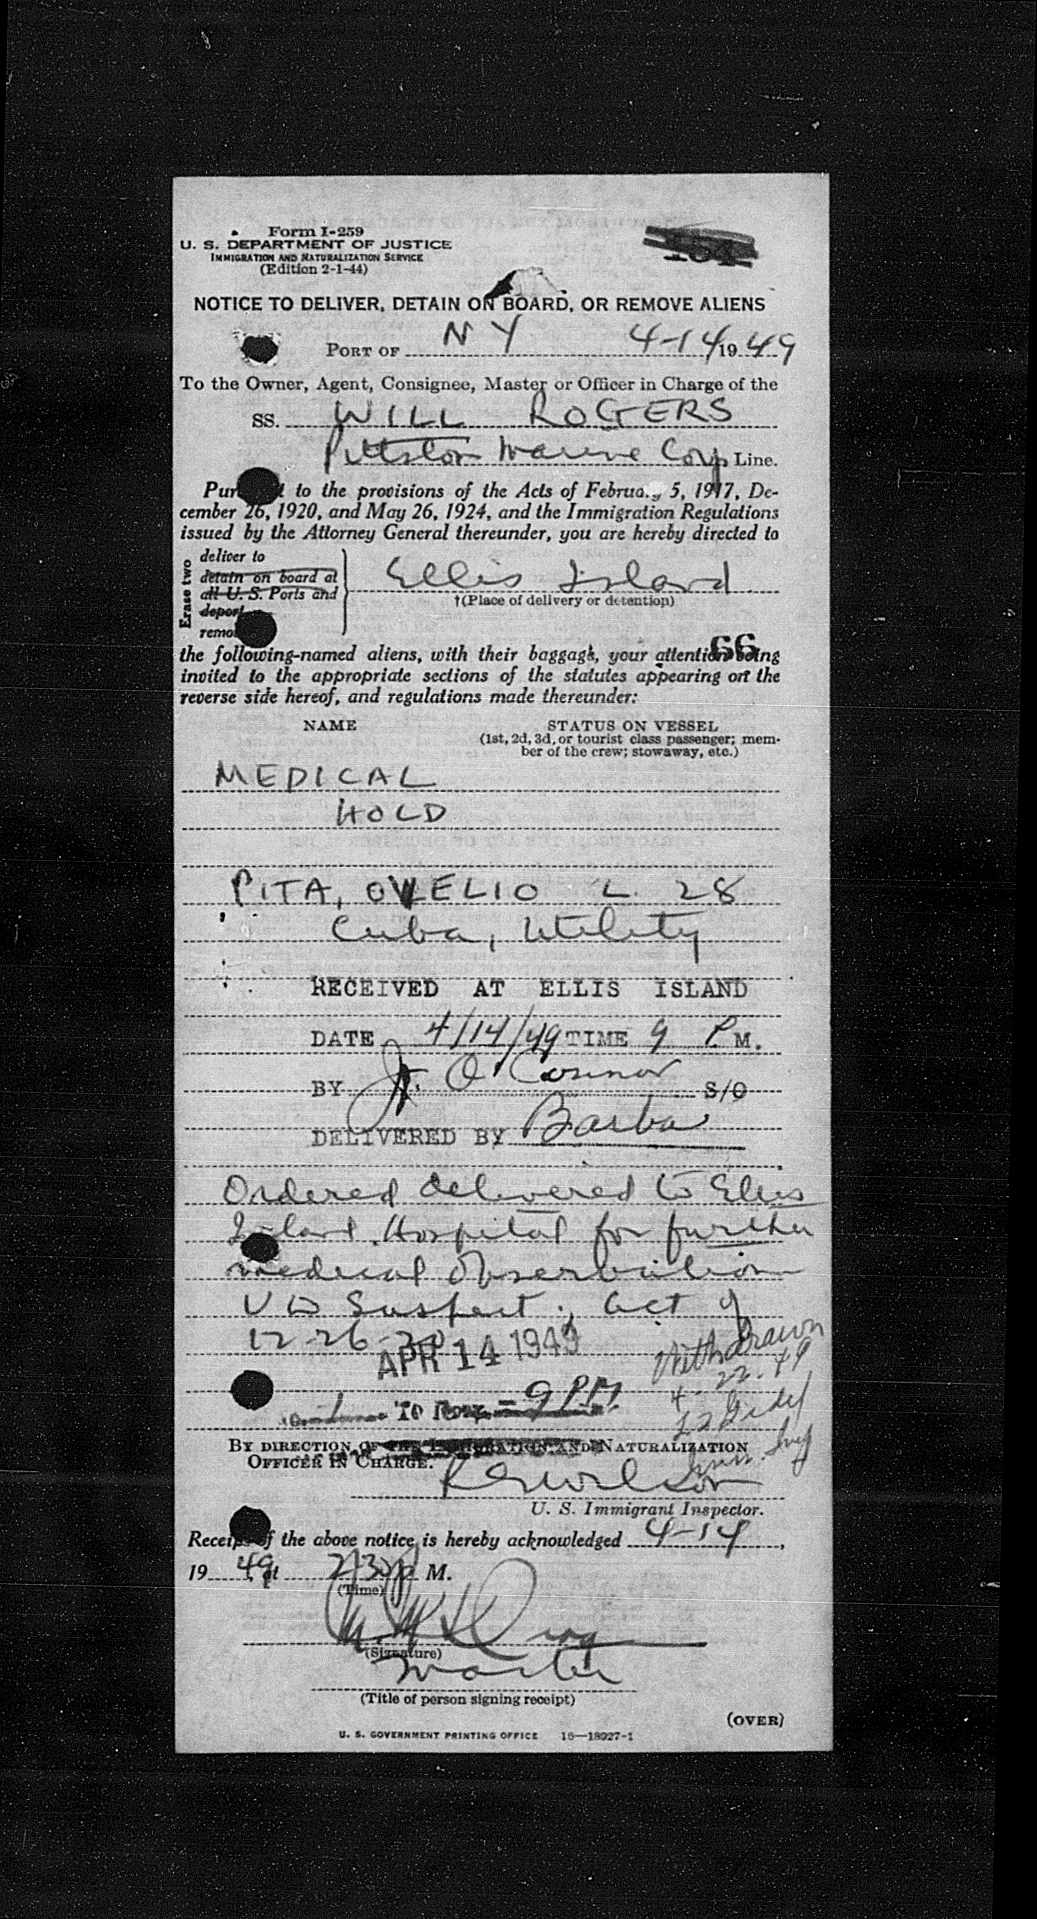 Form I-259
U. S. DEPARTMENT OF JUSTICE
IMMIGRATION AND NATURALIZATION SERVICE
(Edition 2-1-44)
NOTICE TO DELIVER, DETAIN ON BOARD, OR REMOVE ALIENS
PORT OF N Y 4-14 1949
To the Owner, Agent, Consignee, Master or Officer in Charge of the
SS. WILL ROGERS
Pittston Marine Corp Line.
to the provisions of the Acts of February 5, 1917, De-
cember 26, 1920, and May 26, 1924, and the Immigration Regulations
issued by the Attorney General thereunder, you are hereby directed to
Erase two
deliver to
detain on board at
all U. S. Ports and
deport
Ellis Island
†(Place of delivery or detention)
66
the following-named aliens, with their baggage, your attention being
invited to the appropriate sections of the statutes appearing on the
reverse side hereof, and regulations made thereunder:
NAME STATUS ON VESSEL
(1st, 2d, 3d, or tourist class passenger; mem-
ber of the crew; stowaway, etc.)
MEDICAL
HOLD
PITA, OVELIO L. 28
Cuba, Utility
RECEIVED AT ELLIS ISLAND
DATE 4/14/49 TIME 9 P M.
BY O'Connor S/O
DELIVERED BY Barba
Ordered delivered to Ellis
Island Hospital for further
medical observation
V D Suspect; act of
12-26-20
APR 14 1949
Withdrawn
4-22-49
9 PM
BY DIRECTION OF THE IMMIGRATION AND NATURALIZATION
OFFICER IN CHARGE.
Wilson
U. S. Immigrant Inspector.
Receipt of the above notice is hereby acknowledged 4-14,
1949, at 2:30 p M.
(Time)
(Signature)
Master
(Title of person signing receipt)
(OVER)
U. S. GOVERNMENT PRINTING OFFICE 16—18927-1